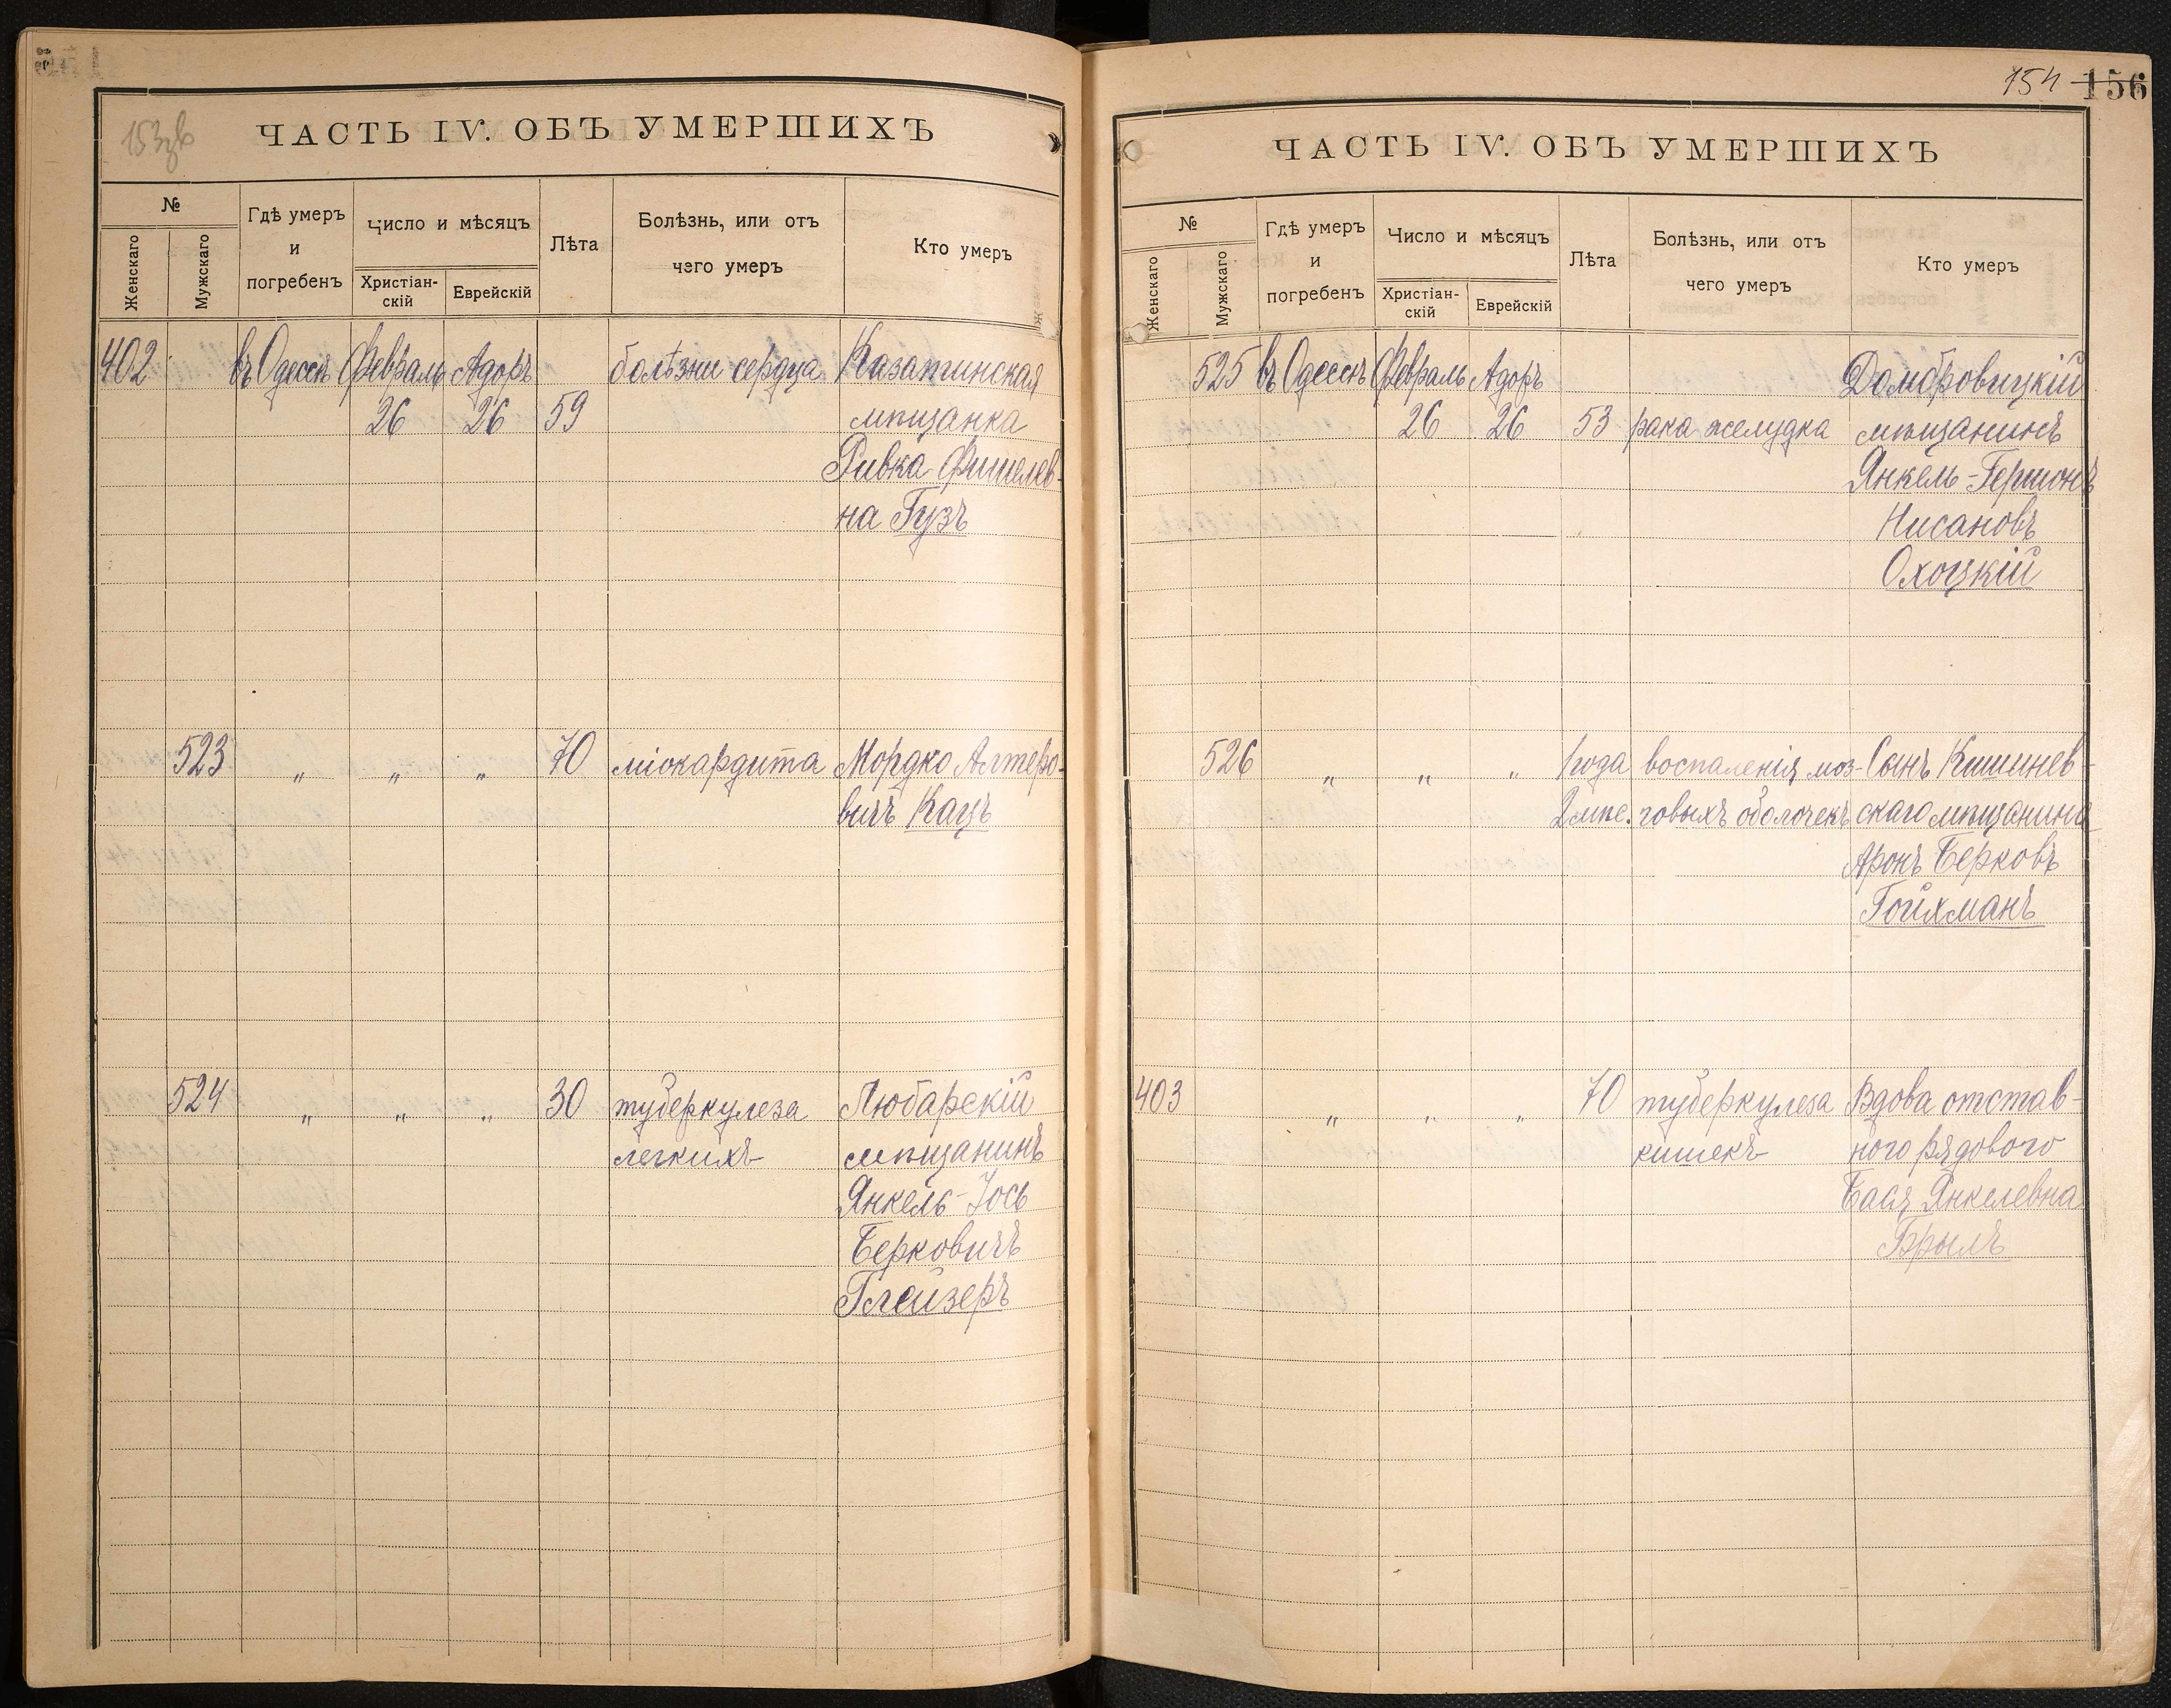 153зв
ЧАСТЬ IV. ОБЪ УМЕРШИХЪ
№
Женскаго
Мужскаго
Гдѣ умеръ
и
погребенъ
Число и мѣсяцъ
Христіан-
скій
Еврейскій
Лѣта
Болѣзнь, или отъ
чего умеръ
Кто умеръ
402 въ Одессѣ Февраль Адоръ болѣзни сердца Казатинская
26 26 59 мѣщанка
Ривка Фишелев-
на Гузъ
523 „ „ „ 70 міокардита Мордко Алтеро-
вичъ Кацъ
524 „ „ „ 30 туберкулеза Любарскій
легкихъ мѣщанинъ
Янкель-Іось
Берковичъ
Глейзеръ
154 156
ЧАСТЬ IV. ОБЪ УМЕРШИХЪ
№
Женскаго
Мужскаго
Гдѣ умеръ
и
погребенъ
Число и мѣсяцъ
Христіан-
скій
Еврейскій
Лѣта
Болѣзнь, или отъ
чего умеръ
Кто умеръ
525 въ Одессѣ Февраль Адоръ Домбровицкій
26 26 53 рака желудка мѣщанинъ
Янкель-Гершонъ
Нисановъ
Охоцкій
526 „ „ „ 1 года воспаленія моз- Сынъ Кишинев-
2 мѣс. говыхъ оболочекъ скаго мѣщанина
Аронъ Берковъ
Гойхманъ
403 „ „ „ 70 туберкулеза Вдова отстав-
кишекъ ного рядового
Бася Янкелевна
Брылъ